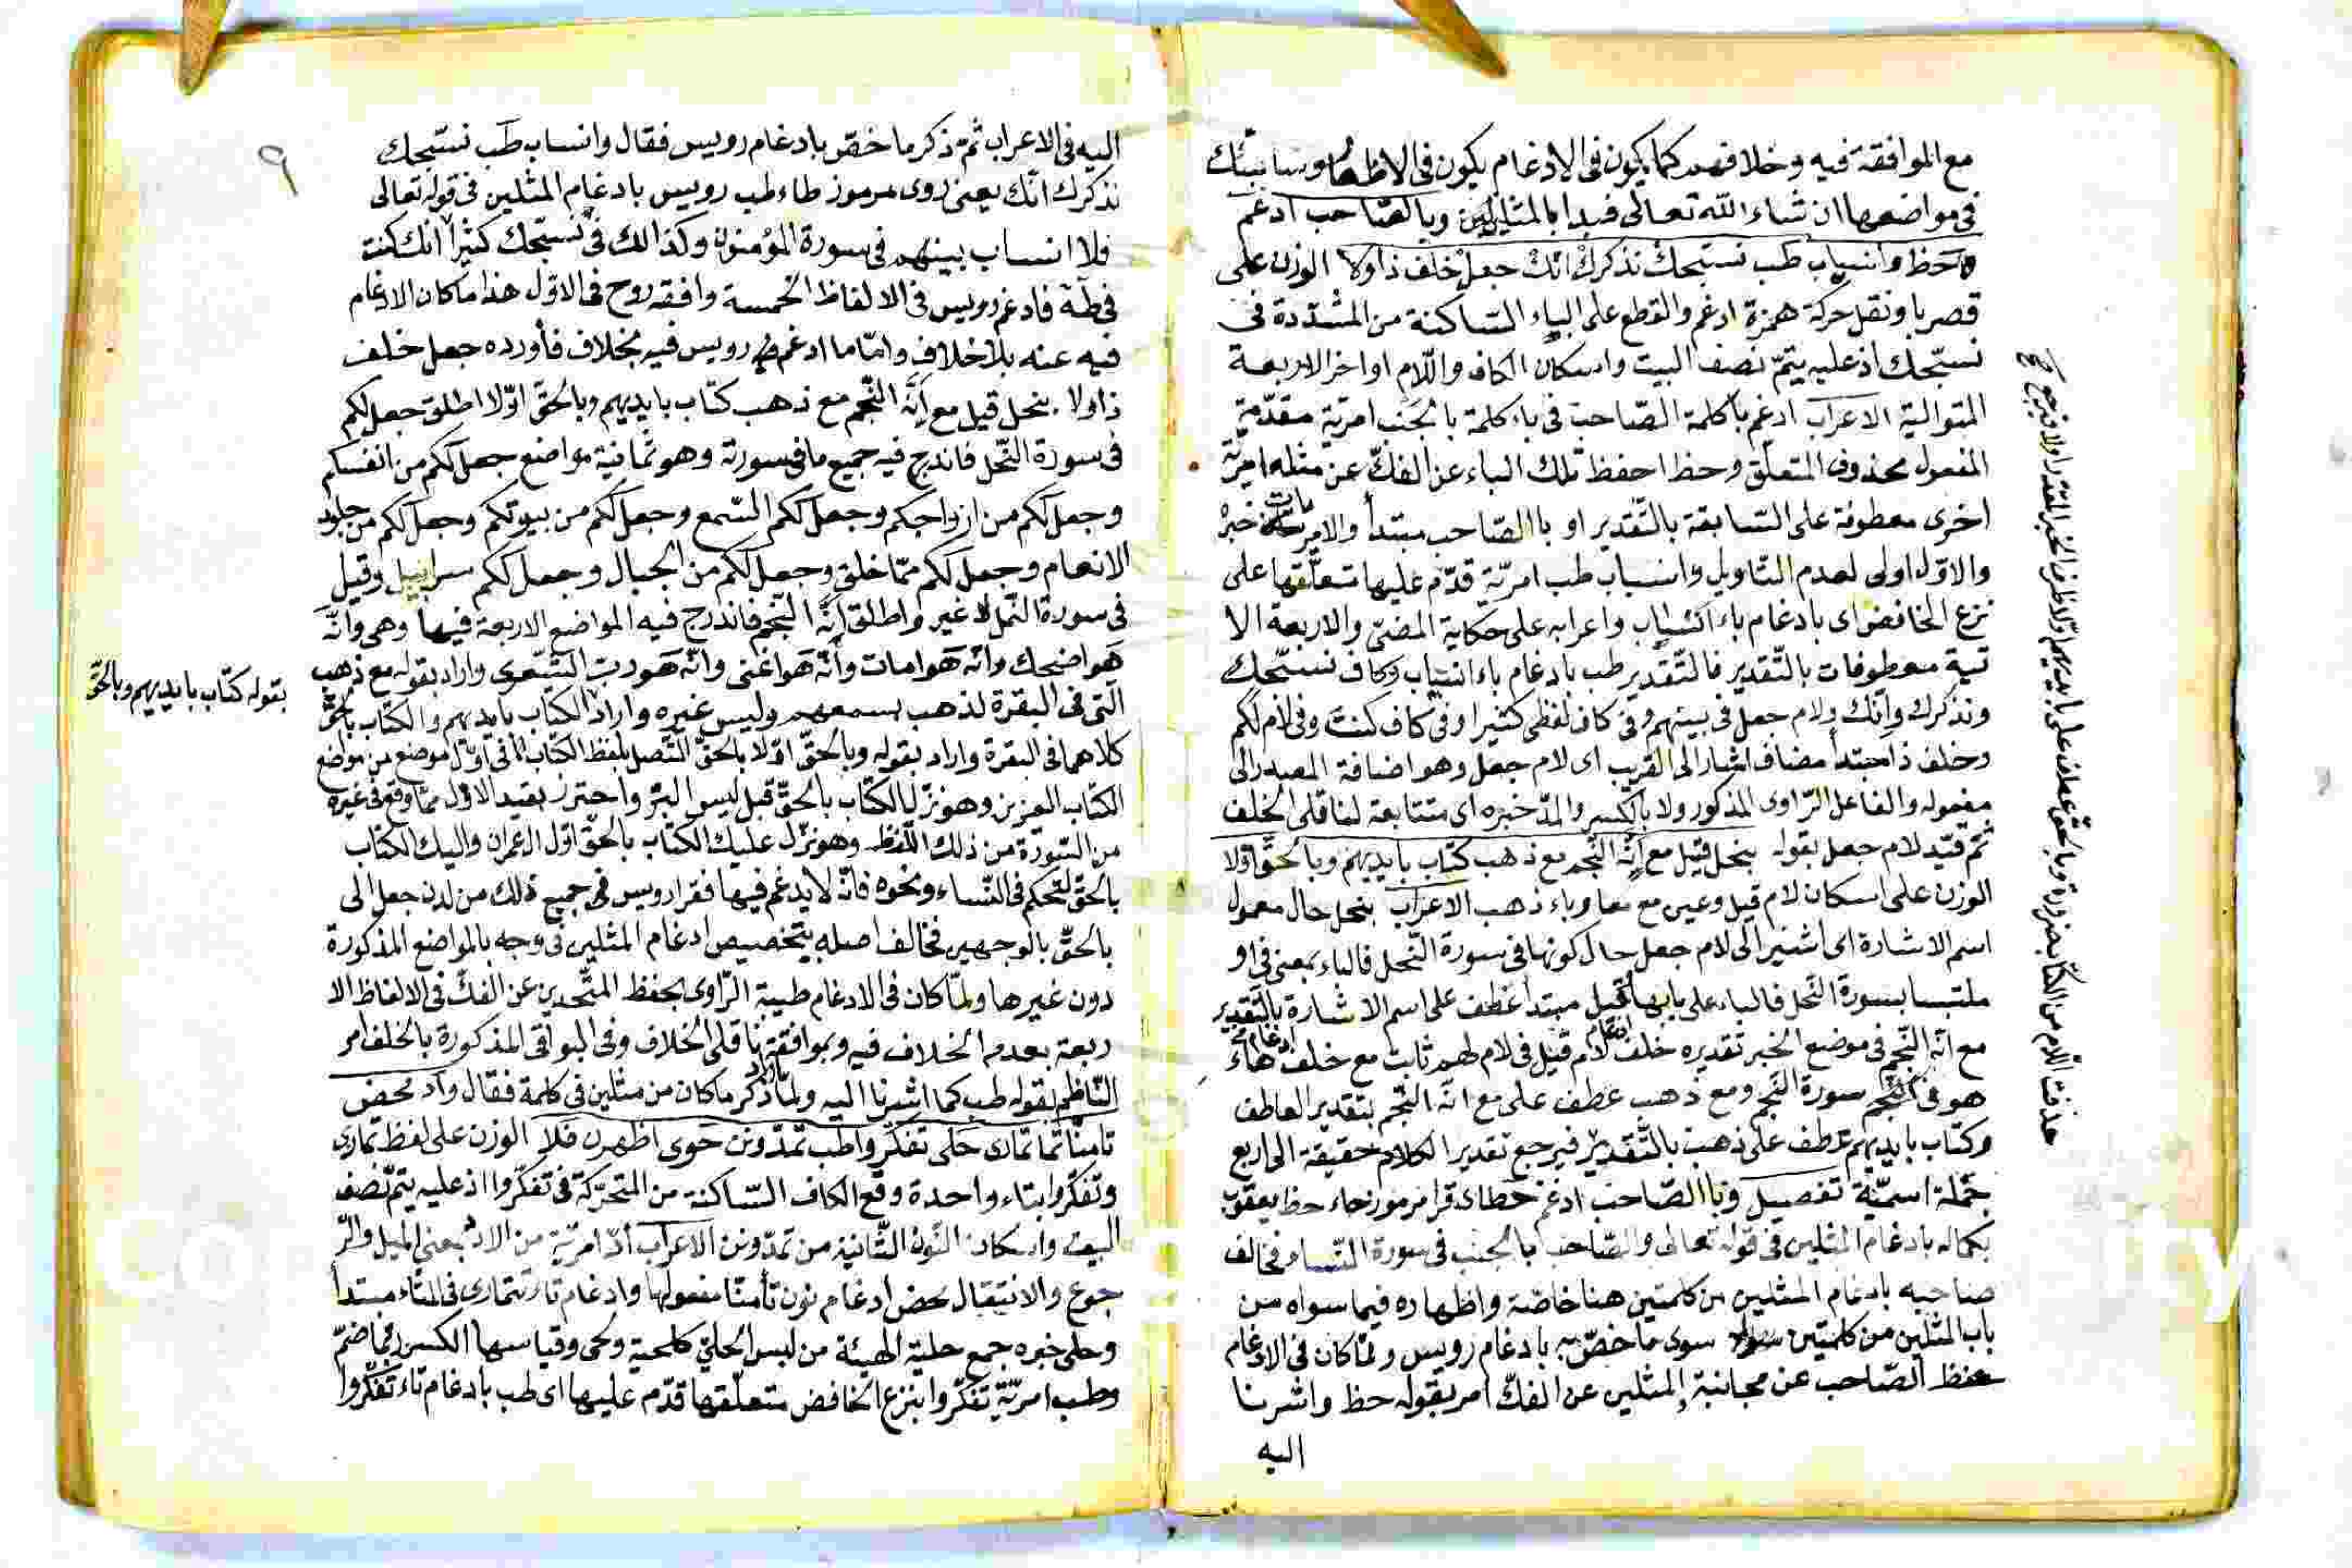 مع الموافقة فيه وخلافهم كما يكون فى الادغام يكون فى الاظهار وسانبئك
فى مواضعها ان شاء الله تعالى فبدا بالمثلين وبالصاحب ادغم
حظ وانساب طب نسبحك نذكرك انك جعل خلف ذا ولا الوزن على
قصر با ونقل حركة همزة ادغم والقطع على الباء الساكنة من المشددة فى
نسبحك اذ عليه يتم نصف البيت واسكان الكاف واللام اواخر الاربعة
المتوالية الاعراب ادغم با كلمة الصاحب فى باء كلمة بالجنب امرية مقدمة
المفعول محذوف المتعلق وحظ احفظ تلك الباء عن الفك عن مثله امرية
اخرى معطوفة على السابقة بالتقدير او با الصاحب مبتدأ والامريتان خبره
والاول اولى لعدم التاويل وانساب طب امرية قدم عليها متعلقها على
نزع الخافض اى بادغام باء انساب واعرابه على حكاية المضى والاربعة الا
تية معطوفات بالتقدير فالتقدير طب بادغام باء انساب وكاف نسبحك
ونذكرك وانك ولام جعل فى بينهم وفى كاف لفظى كثيرا وفى كاف كنت وفى لام لكم
وخلف ذا مبتدا مضاف اشار الى القريب اى لام جعل وهو اضافة المصدر الى
مفعوله والفاعل الراوى المذكور ولا بالكسر والمد خبره اى متتابعة لناقلى الخلف
ثم قيد لام جعل بقوله بنحل قيل مع انه النجم مع ذهب كتاب بايديهم وبالحق اولا
الوزن على اسكان لام قيل وعين مع معا وباء ذهب الاعراب بنحل حال معمول
اسم الاشارة اى اشير الى لام جعل حال كونها فى سورة النحل فالباء بمعنى فى او
ملتبسا بسورة النحل فالباء على بابها قيل مبتدا عطف على اسم الاشارة بالتقدير
مع انه النجم فى موضع الخبر تقديره خلف ادغام لام قيل فى لام لهم ثابت مع خلف ادغام هاء
هو فى النجم سورة النجم ومع ذهب عطف على مع انه النجم بتقدير العاطف
وكتاب بايديهم عطف على ذهب بالتقدير فيرجع تقدير الكلام حقيقة الى اربع
جملة اسمية تفصيل وبا الصاحب ادغم حط اى قرا مرموز حاء حظ يعقوب
بكماله بادغام المثلين فى قوله تعالى والصاحب بالجنب فى سورة النساء فخالف
صاحبيه بادغام المثلين من كلمتين هنا خاصة واظهاره فيما سواه من
باب المثلين من كلمتين سوى ما خص به بادغام رويس ولما كان فى الادغام
حفظ الصاحب عن مجانبة المثلين عن الفك امر بقوله حظ واشرنا
اليه
حذفت اللام من الكتاب ضرورة وبالحق عطف على بايديهم
٩
اليه فى الاعراب ثم ذكر ما خص بادغام رويس فقال وانساب طب نسبحك
نذكرك انك يعنى روى مرموز طاء طب رويس بادغام المثلين فى قوله تعالى
فلا انساب بينهم فى سورة المؤمنون وكذالك فى نسبحك كثيرا انك كنت
فى طه فادغم رويس فى الالفاظ الخمسة وافقه روح فى الاول هذا ما كان الادغام
فيه عنه بلا خلاف واما ما ادغم رويس فيه بخلاف فأورده جعل خلف
ذا ولا بنحل قيل مع انه النجم مع ذهب كتاب بايديهم وبالحق اولا اطلق جعل لكم
فى سورة النحل فاندرج فيه جميع ما فى سورته وهو ثمانية مواضع جعل لكم من انفسكم
وجعل لكم من ازواجكم وجعل لكم السمع وجعل لكم من بيوتكم وجعل لكم من جلود
الانعام وجعل لكم مما خلق وجعل لكم من الجبال وجعل لكم سرابيل وقيل
فى سورة النمل لا غير واطلق انه النجم فاندرج فيه المواضع الاربعة فيها وهى وانه
هو اضحك وانه هو امات وأنه هو اغنى وانه هو رب الشعرى واراد بقوله مع ذهب
التى فى البقرة لذهب بسمعهم وليس غيره واراد الكتاب بايديهم والكتاب بالحق
بقوله كتاب بايديهم وبالحق
كلاهما فى البقرة واراد بقوله وبالحق اولا بالحق المتصل بلفظ الكتاب فى اول موضع من موضع
الكتاب العزيز وهو نزل الكتاب بالحق قبل ليس البر واحترز بقيد الاول مما وقع فى غيره
من السورة من ذلك اللفظ وهو نزل عليك الكتاب بالحق اول ال عمران واليك الكتاب
بالحق لتحكم فى النساء ونحوه فانه لا يدغم فيها فقرا رويس فى جميع ذلك من لدن جعل الى
بالحق بالوجهين فخالف اصله بتخصيص ادغام المثلين فى وجه بالمواضع المذكورة
دون غيرها ولما كان فى الادغام طيبة الراوى بحفظ المتحدين عن الفك فى الالفاظ الا
ربعة بعدم الخلاف فيه وبموافقة ناقلى الخلاف وفى البواقى المذكورة بالخلف امر
الناظم بقوله طب كما اشرنا اليه ولما اراد ذكر ما كان من مثلين فى كلمة فقال وأد محض
تامنا تمارى حلى تفكروا طب تمدونن حوى اظهرن فلا الوزن على لفظ تمارى
وتفكروا بتاء واحدة وقع الكاف الساكنة من المتحركة فى تفكروا اذ عليه يتم نصف
البيت واسكان النون الثانية من تمدونن الاعراب أد امرية من الاد بمعنى الميل والر
جوع والانتقال محض ادغام نون تأمنا مفعولها وادغام تاء تتمارى فى التاء مبتدا
وحلى خبره جمع حلية الهيئة من لبس الحلى كلحية ولحى وقياسها الكسر فما ضم
وطب امرية تفكروا بنزع الخافض متعلقها قدم عليها اى طب بادغام تاء تفكروا